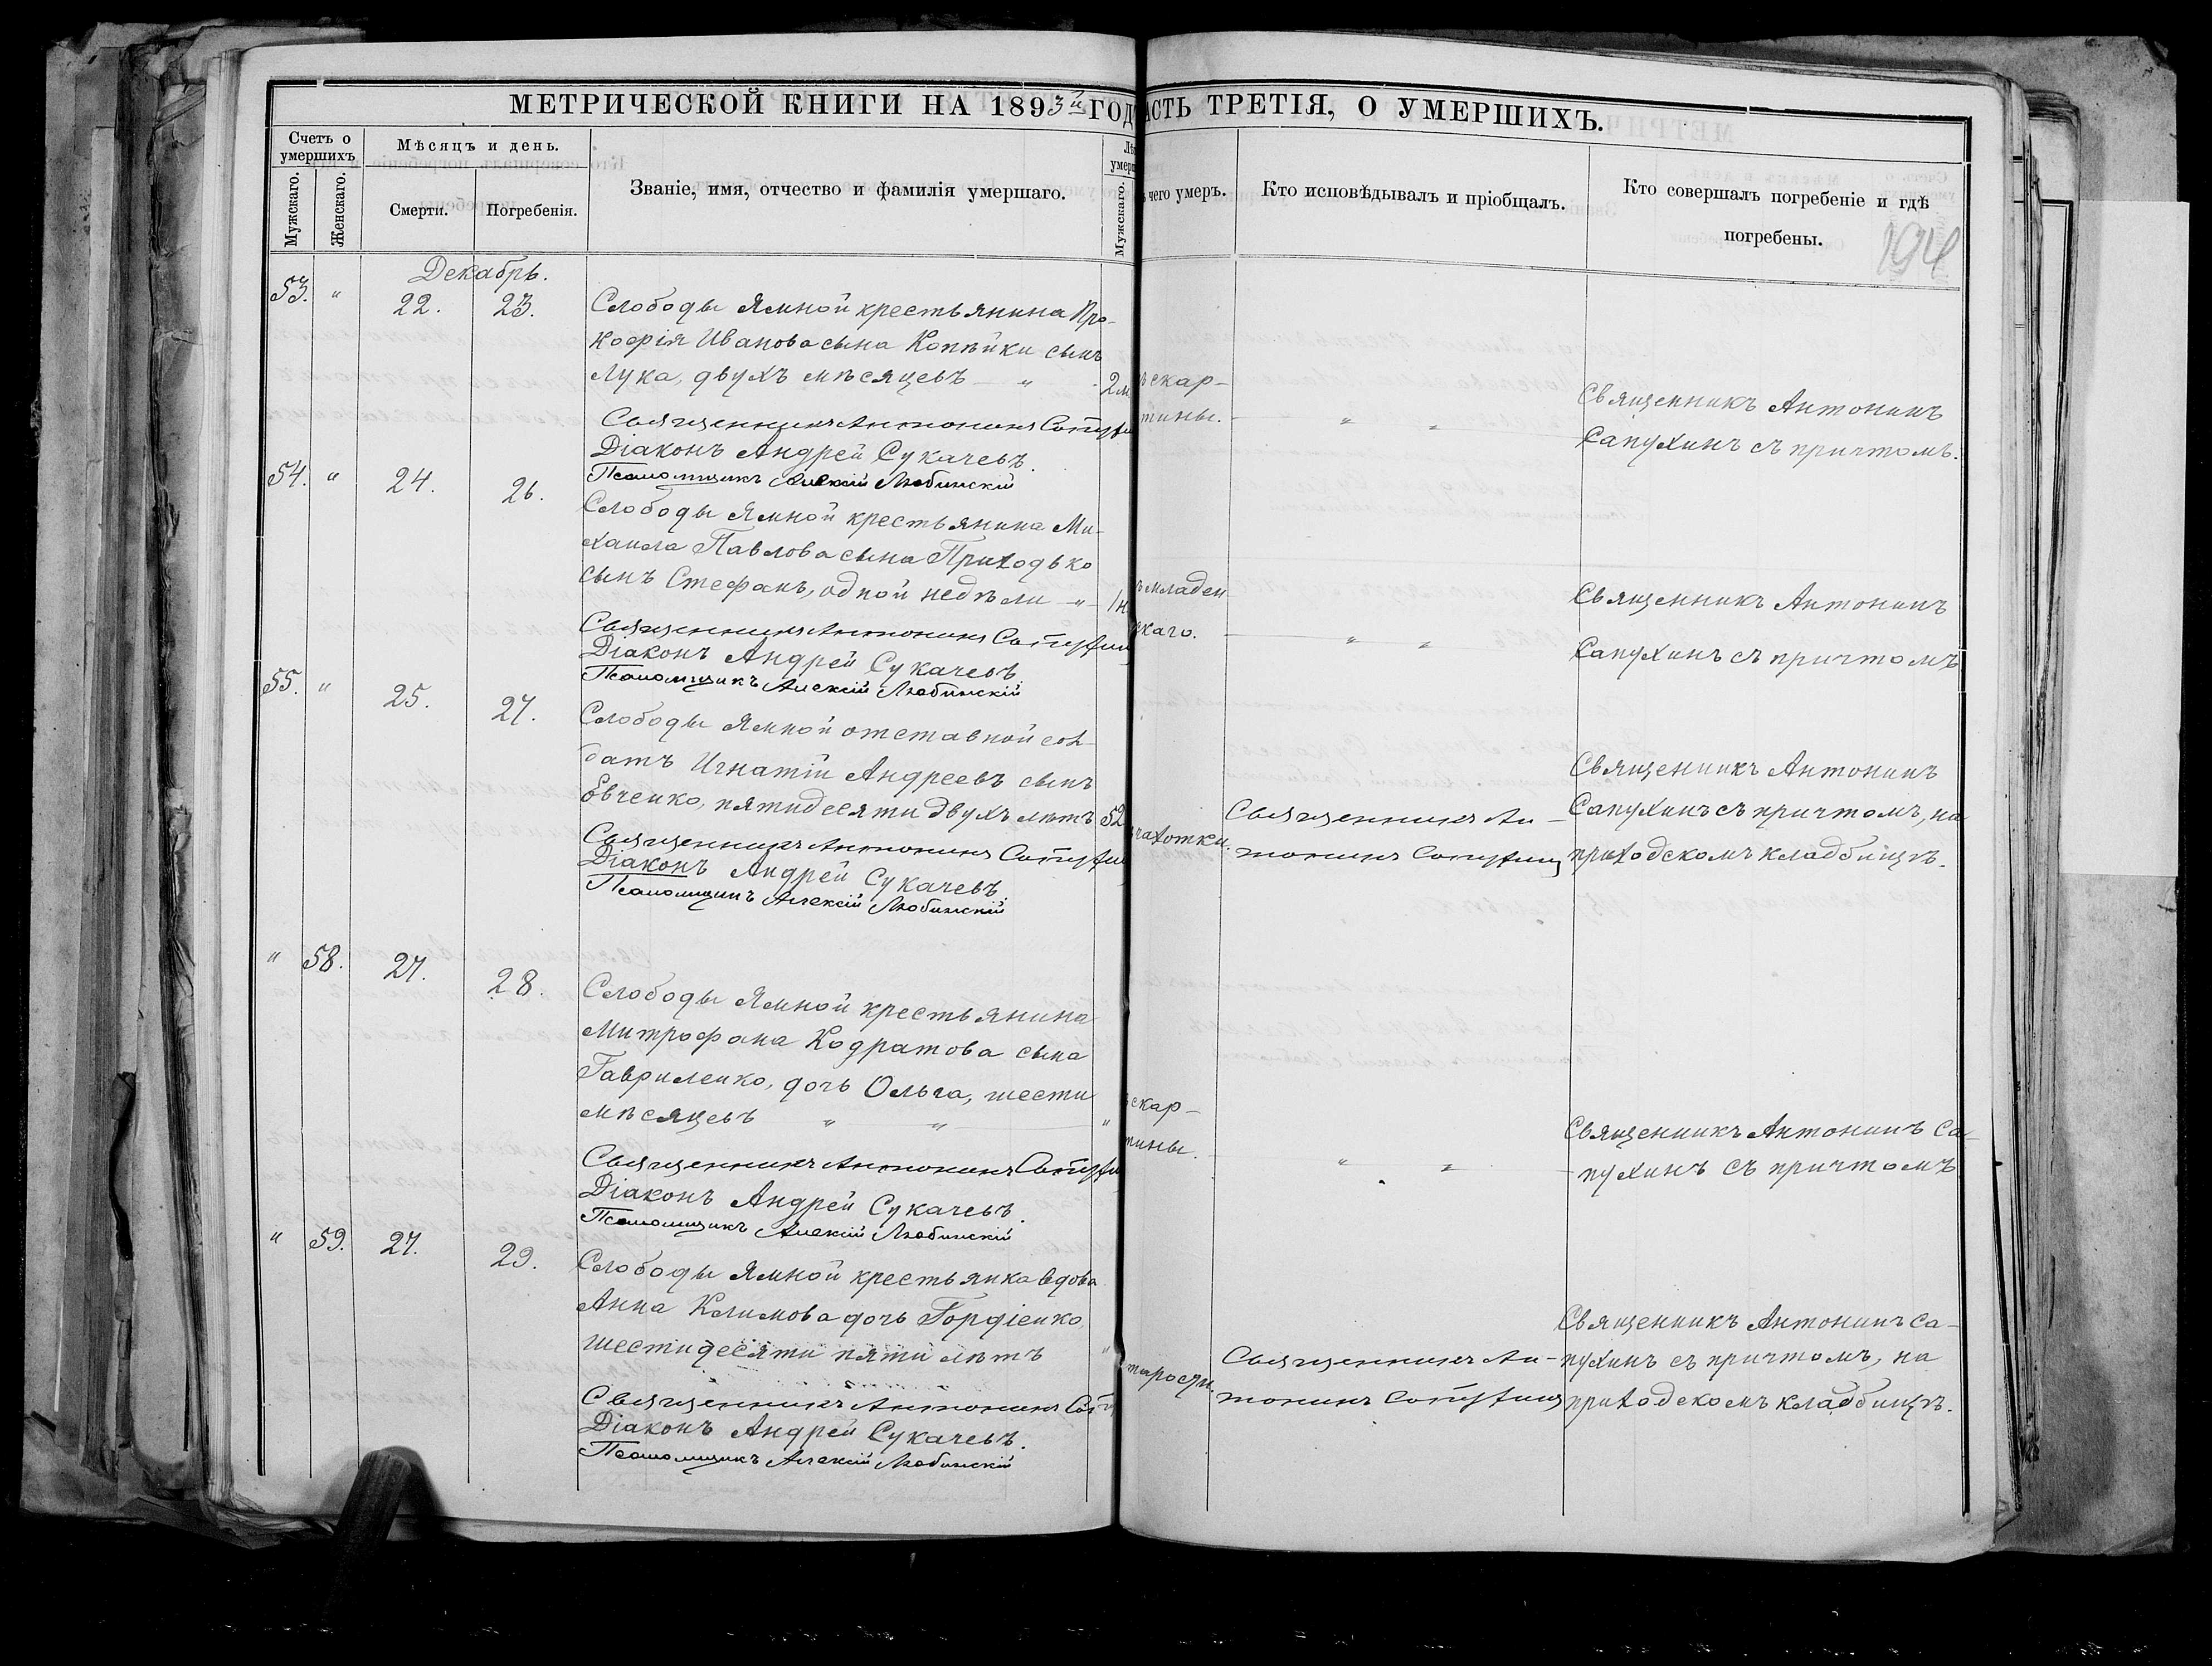 МЕТРИЧЕСКОЙ КНИГИ НА 1893й ГОД
АСТЬ ТРЕТІЯ, О УМЕРШИХЪ.
Счетъ о умершихъ
Мужскаго.
Женскаго.
Мѣсяцъ и день.
Смерти.
Погребенія.
Званіе, имя, отчество и фамилія умершаго.
Мужскаго.
чего умеръ.
Кто исповѣдывалъ и пріобщалъ.
Кто совершалъ погребеніе и гдѣ
погребены.
194
Декабрь.
53. " 22. 23.
Слободы Ямной крестьянина Про-
кофія Иванова сына Копѣйки сынъ
Лука, двухъ мѣсяцевъ — " 2м
Священникъ Антонинъ Сапухи
Діаконъ Андрей Сукачевъ.
Псаломщикъ Алексій Любинскій
скар-
тины.
" "
Священникъ Антонинъ
Сапухинъ съ причтомъ.
54. " 24. 26.
Слободы Ямной крестьянина Ми-
хаила Павлова сына Приходько
сынъ Стефанъ, одной недѣли — " 1н
Священникъ Антонинъ Сапухин
Діаконъ Андрей Сукачевъ
Псаломщикъ Алексій Любинскій
младен
каго.
" "
Священникъ Антонинъ
Сапухинъ съ причтомъ
55. " 25. 27.
Слободы Ямной отставной сол-
датъ Игнатій Андреевъ сынъ
Евченко, пятидесяти двухъ лѣтъ 52
Священникъ Антонинъ Сапухин
Діаконъ Андрей Сукачевъ
Псаломщикъ Алексій Любинскій
чахотки.
Священникъ Ан-
тонинъ Сапухинъ
Священникъ Антонинъ
Сапухинъ съ причтомъ, на
приходскомъ кладбищѣ.
" 58. 27. 28.
Слободы Ямной крестьянина
Митрофана Кодратова сына
Гавриленко, дочь Ольга, шести
мѣсяцевъ " " "
Священникъ Антонинъ Сапухи
Діаконъ Андрей Сукачевъ.
Псаломщикъ Алексій Любинскій
скар-
тины.
" "
Священникъ Антонинъ Са-
пухинъ съ причтомъ
" 59. 27. 29.
Слободы Ямной крестьянка вдова
Анна Климова дочь Гордіенко,
шестидесяти пяти лѣтъ "
Священникъ Антонинъ Сап
Діаконъ Андрей Сукачевъ.
Псаломщикъ Алексій Любинскій
тарости.
Священникъ Ан-
тонинъ Сапухинъ
Священникъ Антонинъ Са-
пухинъ съ причтомъ, на
приходскомъ кладбищѣ.